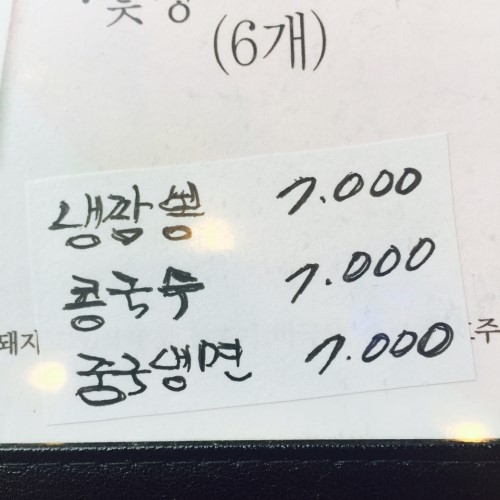 (6개)
냉짬뽕 7.000
콩국수 7.000
돼지
중국냉면 7.000
주